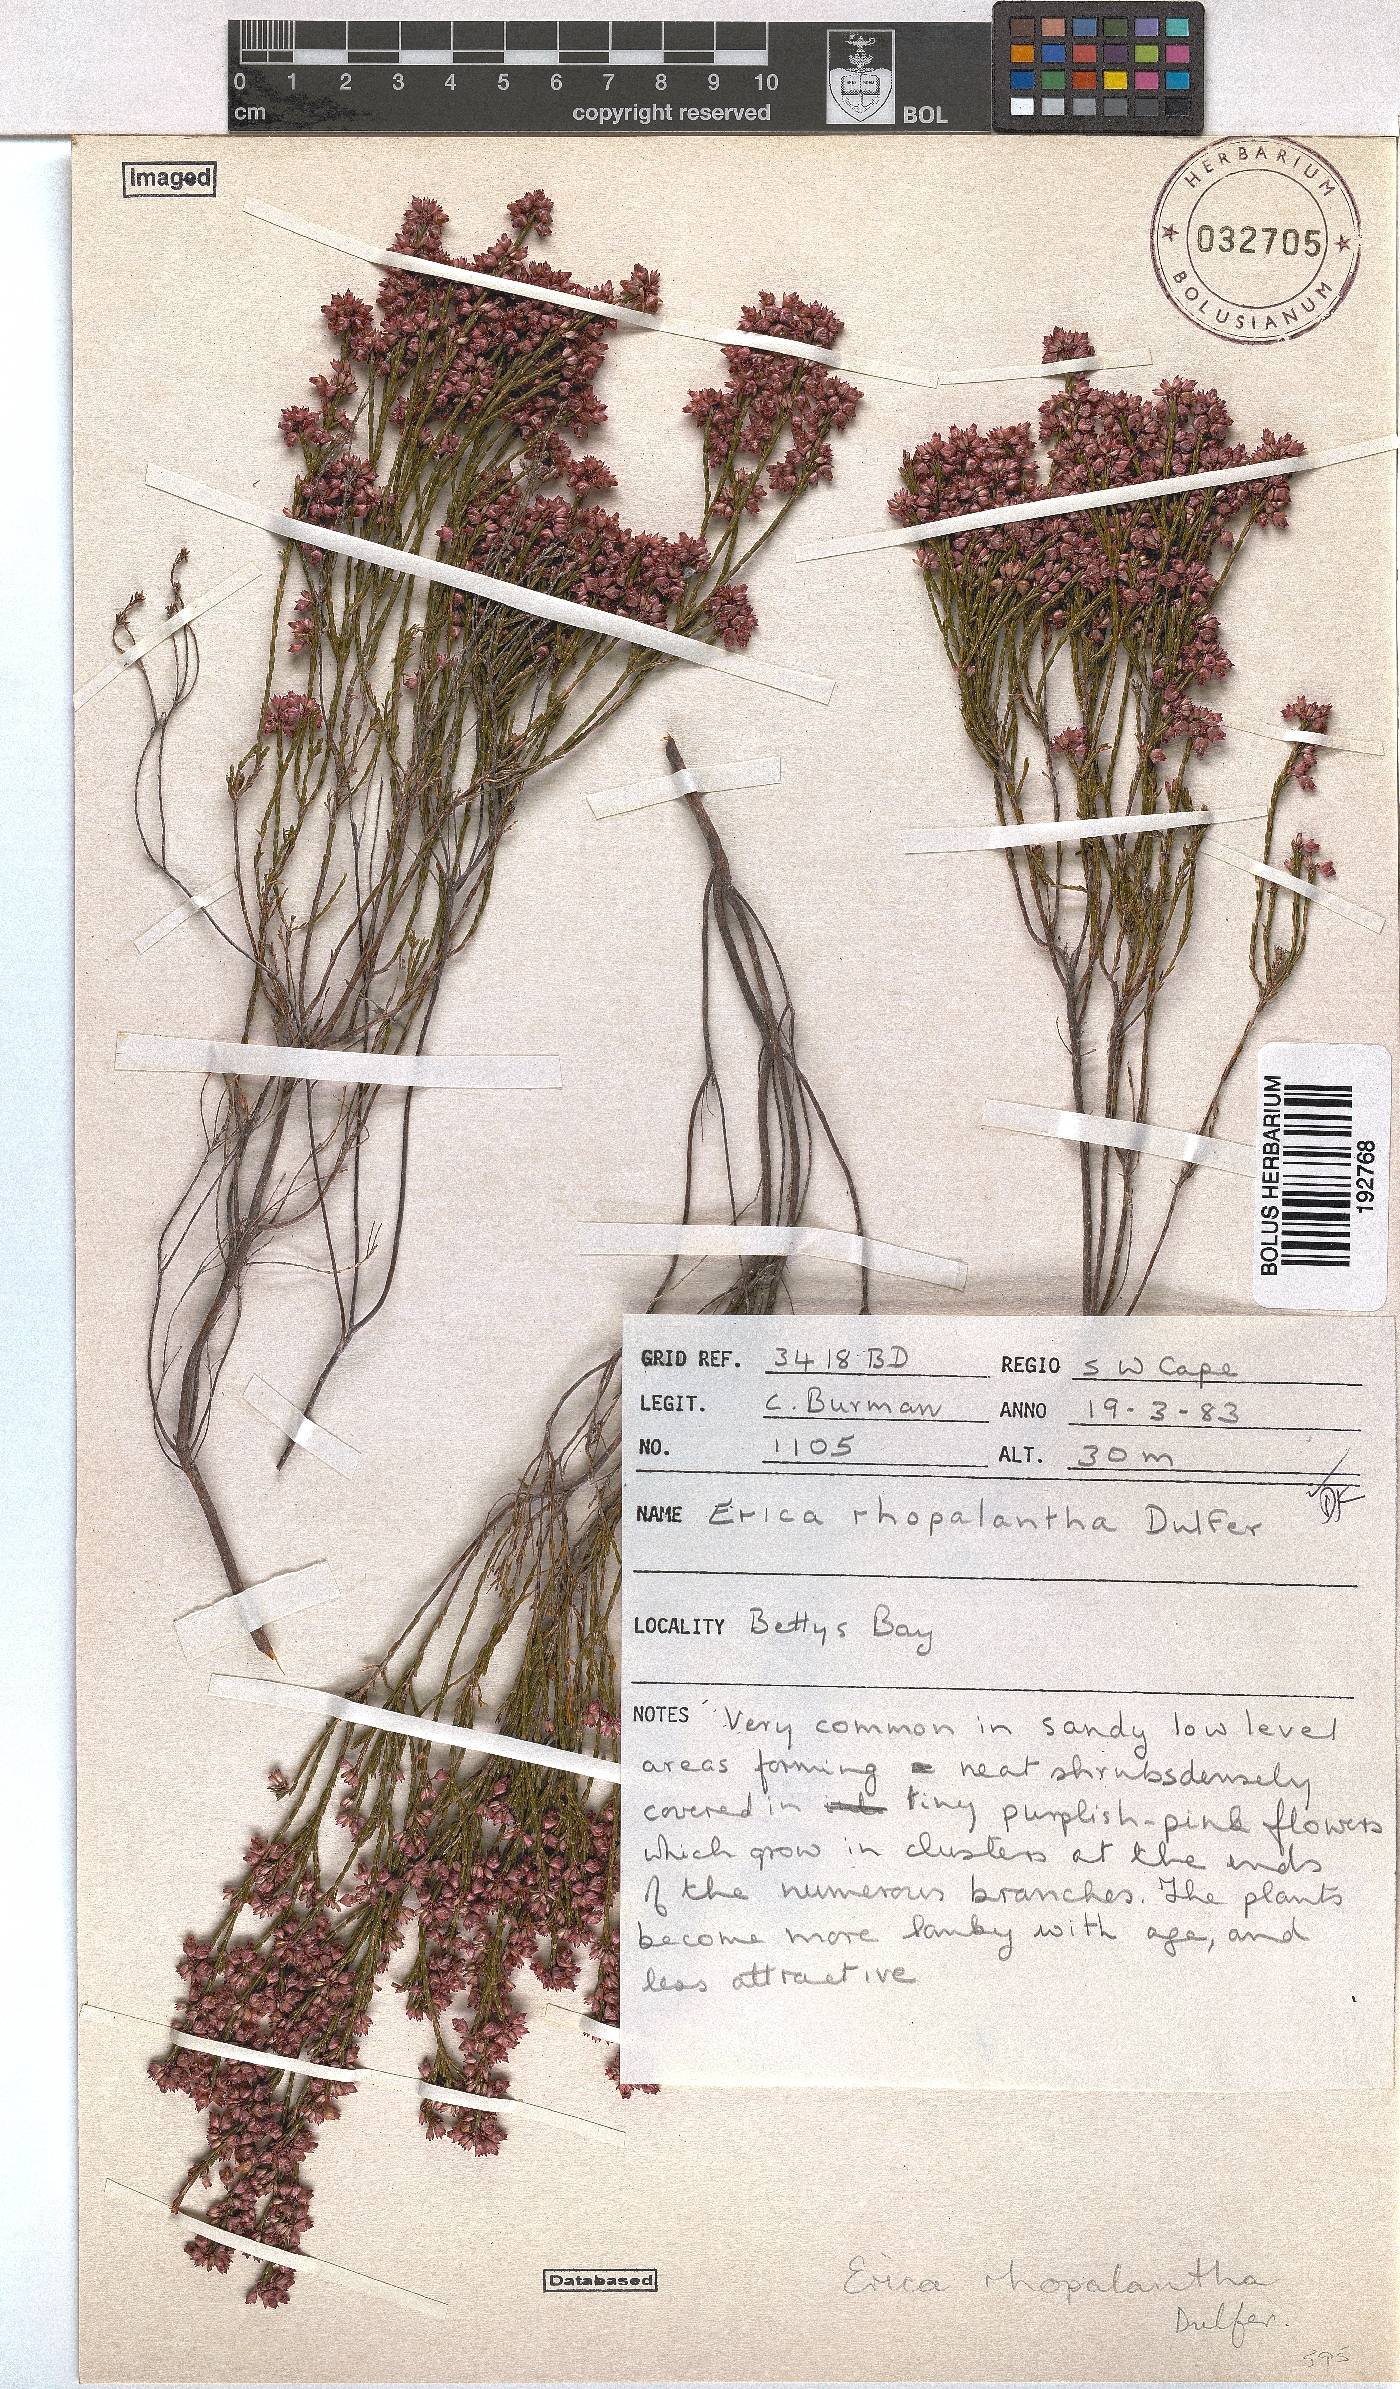 0 1 2 3 4 5 6 7 8 9 10
cm copyright reserved BOL
Imaged
HERBARIUM
032705
BOLUSIANUM
BOLUS HERBARIUM
192768
GRID REF. 3418 BD REGIO S W Cape
LEGIT. C. Burman ANNO 19-3-83
NO. 1105 ALT. 30 m
NAME Erica rhopalantha Dulfer
LOCALITY Bettys Bay
NOTES Very common in sandy low level
areas forming neat shrubs densely
covered in tiny purplish-pink flowers
which grow in clusters at the ends
of the numerous branches. The plants
become more lanky with age, and
less attractive
Databased
Erica rhopalantha
Dulfer.
595